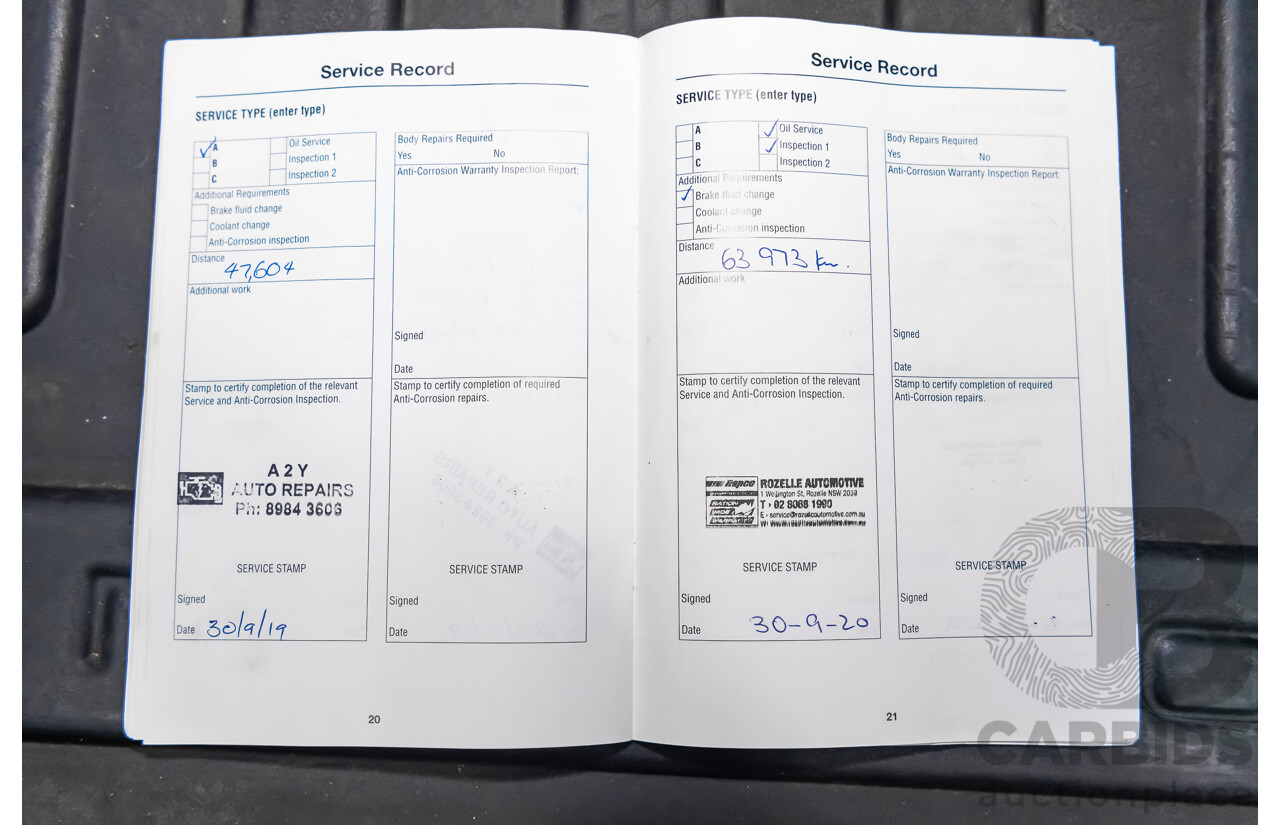 Service Record
SERVICE TYPE (enter type)
A
B
C
Oil Service
Inspection 1
Inspection 2
Additional Requirements
Brake fluid change
Coolant change
Anti-Corrosion inspection
Distance
47,604
Additional work
Stamp to certify completion of the relevant
Service and Anti-Corrosion Inspection.
A 2 Y
AUTO REPAIRS
Ph: 8984 3606
SERVICE STAMP
Signed
Date 30/9/19
Body Repairs Required
Yes No
Anti-Corrosion Warranty Inspection Report:
Signed
Date
Stamp to certify completion of required
Anti-Corrosion repairs.
SERVICE STAMP
Signed
Date
20
Service Record
SERVICE TYPE (enter type)
A
B
C
Oil Service
Inspection 1
Inspection 2
Additional Requirements
Brake fluid change
Coolant change
Anti-Corrosion inspection
Distance
63 973 km.
Additional work
Stamp to certify completion of the relevant
Service and Anti-Corrosion Inspection.
Repco
ROZELLE AUTOMOTIVE
1 Wellington St, Rozelle NSW 2039
T • 02 8068 1990
E • service@rozelleautomotive.com.au
SERVICE STAMP
Signed
Date 30-9-20
Body Repairs Required
Yes No
Anti-Corrosion Warranty Inspection Report:
Signed
Date
Stamp to certify completion of required
Anti-Corrosion repairs.
SERVICE STAMP
Signed
Date
21
CARBIDS
auctionplace